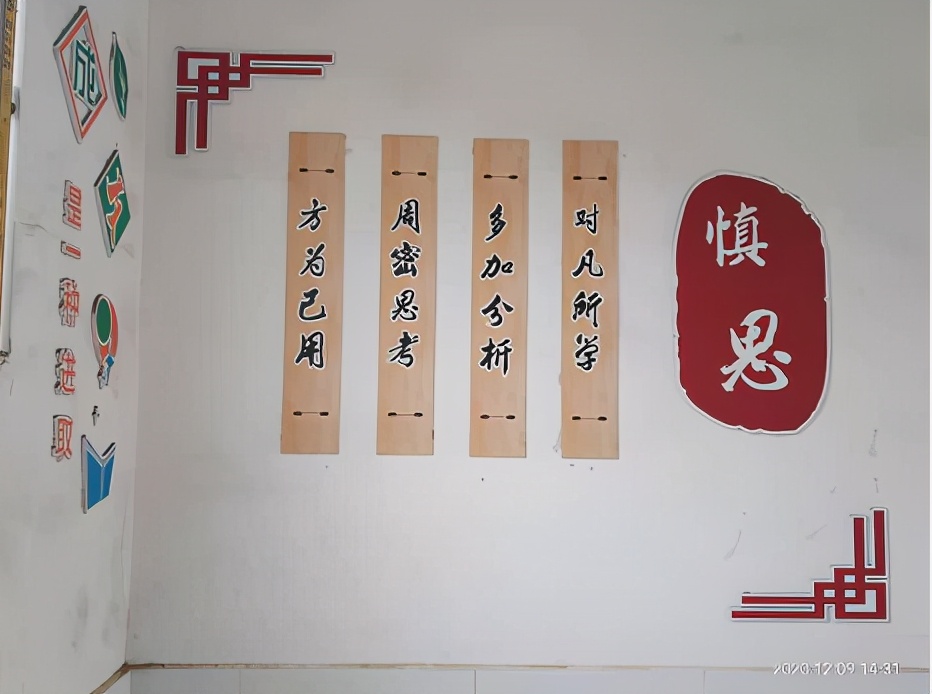 慎思
对凡所学
多加分析
周密思考
方为己用
成
是一种进取
2020.12.09 14:31